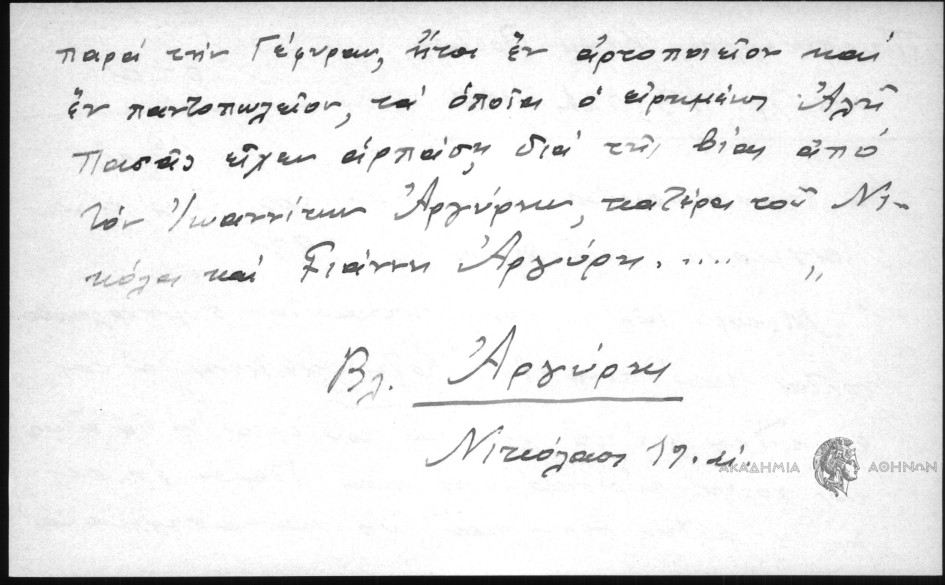 παρά την Γέφυραν, ἤτοι ἕν ἀρτοποιεῖον καί
ἕν παντοπωλεῖον, τά ὁποῖα ὁ εἰρημένος Ἀλῆ
Πασᾶς εἶχεν ἁρπάση διά τῆς βίας ἀπό
τόν Ἰωαννίτην Ἀργύρην, πατέρα τοῦ Νι-
κόλα καί Γιάννη Ἀργύρη. ..... "
Βλ. Ἀργύρης
Νικόλαος
ΑΚΑΔΗΜΙΑ ΑΘΗΝΩΝ